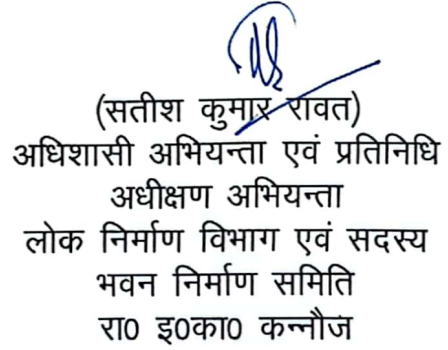 (सतीश कुमार रावत)
अधिशासी अभियन्ता एवं प्रतिनिधि
अधीक्षण अभियन्ता
लोक निर्माण विभाग एवं सदस्य
भवन निर्माण समिति
रा0 इ0का0 कन्नौज